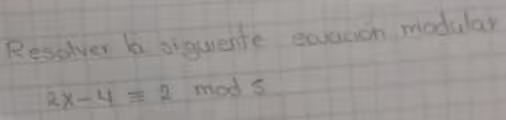 Resolver la siguiente ecuación modular
2x-4 ≡ 2 mod 5